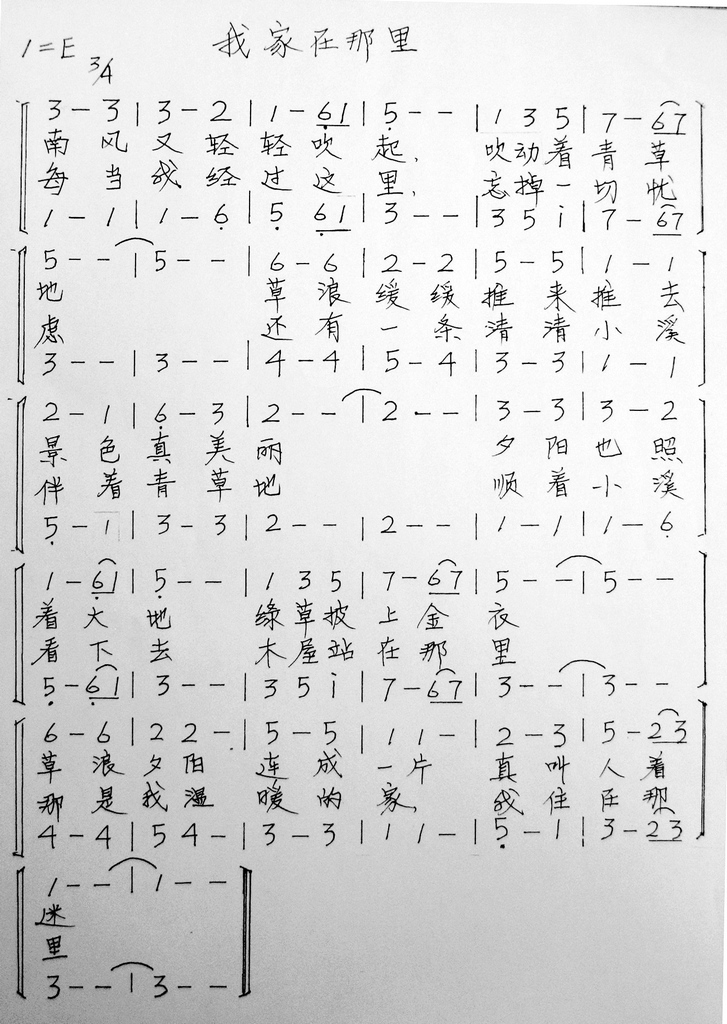 我家在那里
1=E 3/4
3 - 3 | 3 - 2 | 1 - 6̣1 | 5̣ - - | 1 3 5 | 7 - 67
南 风 又 轻 轻 吹 起， 吹 动 着 青 草
每 当 我 经 过 这 里， 忘 掉 一 切 忧
1 - 1 | 1 - 6̣ | 5̣ 6̣1 | 3 - - | 3 5 i | 7 - 67
5 - - | 5 - - | 6 - 6 | 2 - 2 | 5 - 5 | 1 - 1
地 草 浪 缓 缓 推 来 推 去
虑 还 有 一 条 清 清 小 溪
3 - - | 3 - - | 4 - 4 | 5 - 4 | 3 - 3 | 1 - 1
2 - 1 | 6̣ - 3 | 2 - - | 2 - - | 3 - 3 | 3 - 2
景 色 真 美 丽 夕 阳 也 照
伴 着 青 草 地 顺 着 小 溪
5̣ - 1 | 3 - 3 | 2 - - | 2 - - | 1 - 1 | 1 - 6̣
1 - 6̣1 | 5̣ - - | 1 3 5 | 7 - 67 | 5 - - | 5 - -
着 大 地 绿 草 披 上 金 衣
看 下 去 木 屋 站 在 那 里
5̣ - 6̣1 | 3 - - | 3 5 i | 7 - 67 | 3 - - | 3 - -
6 - 6 | 2 2 - | 5 - 5 | 1 1 - | 2 - 3 | 5 - 23
草 浪 夕 阳 连 成 一 片 真 叫 人 着
那 是 我 温 暖 的 家， 我 住 在 那
4 - 4 | 5 4 - | 3 - 3 | 1 1 - | 5̣ - 1 | 3 - 23
1 - - | 1 - -
迷
里
3 - - | 3 - -